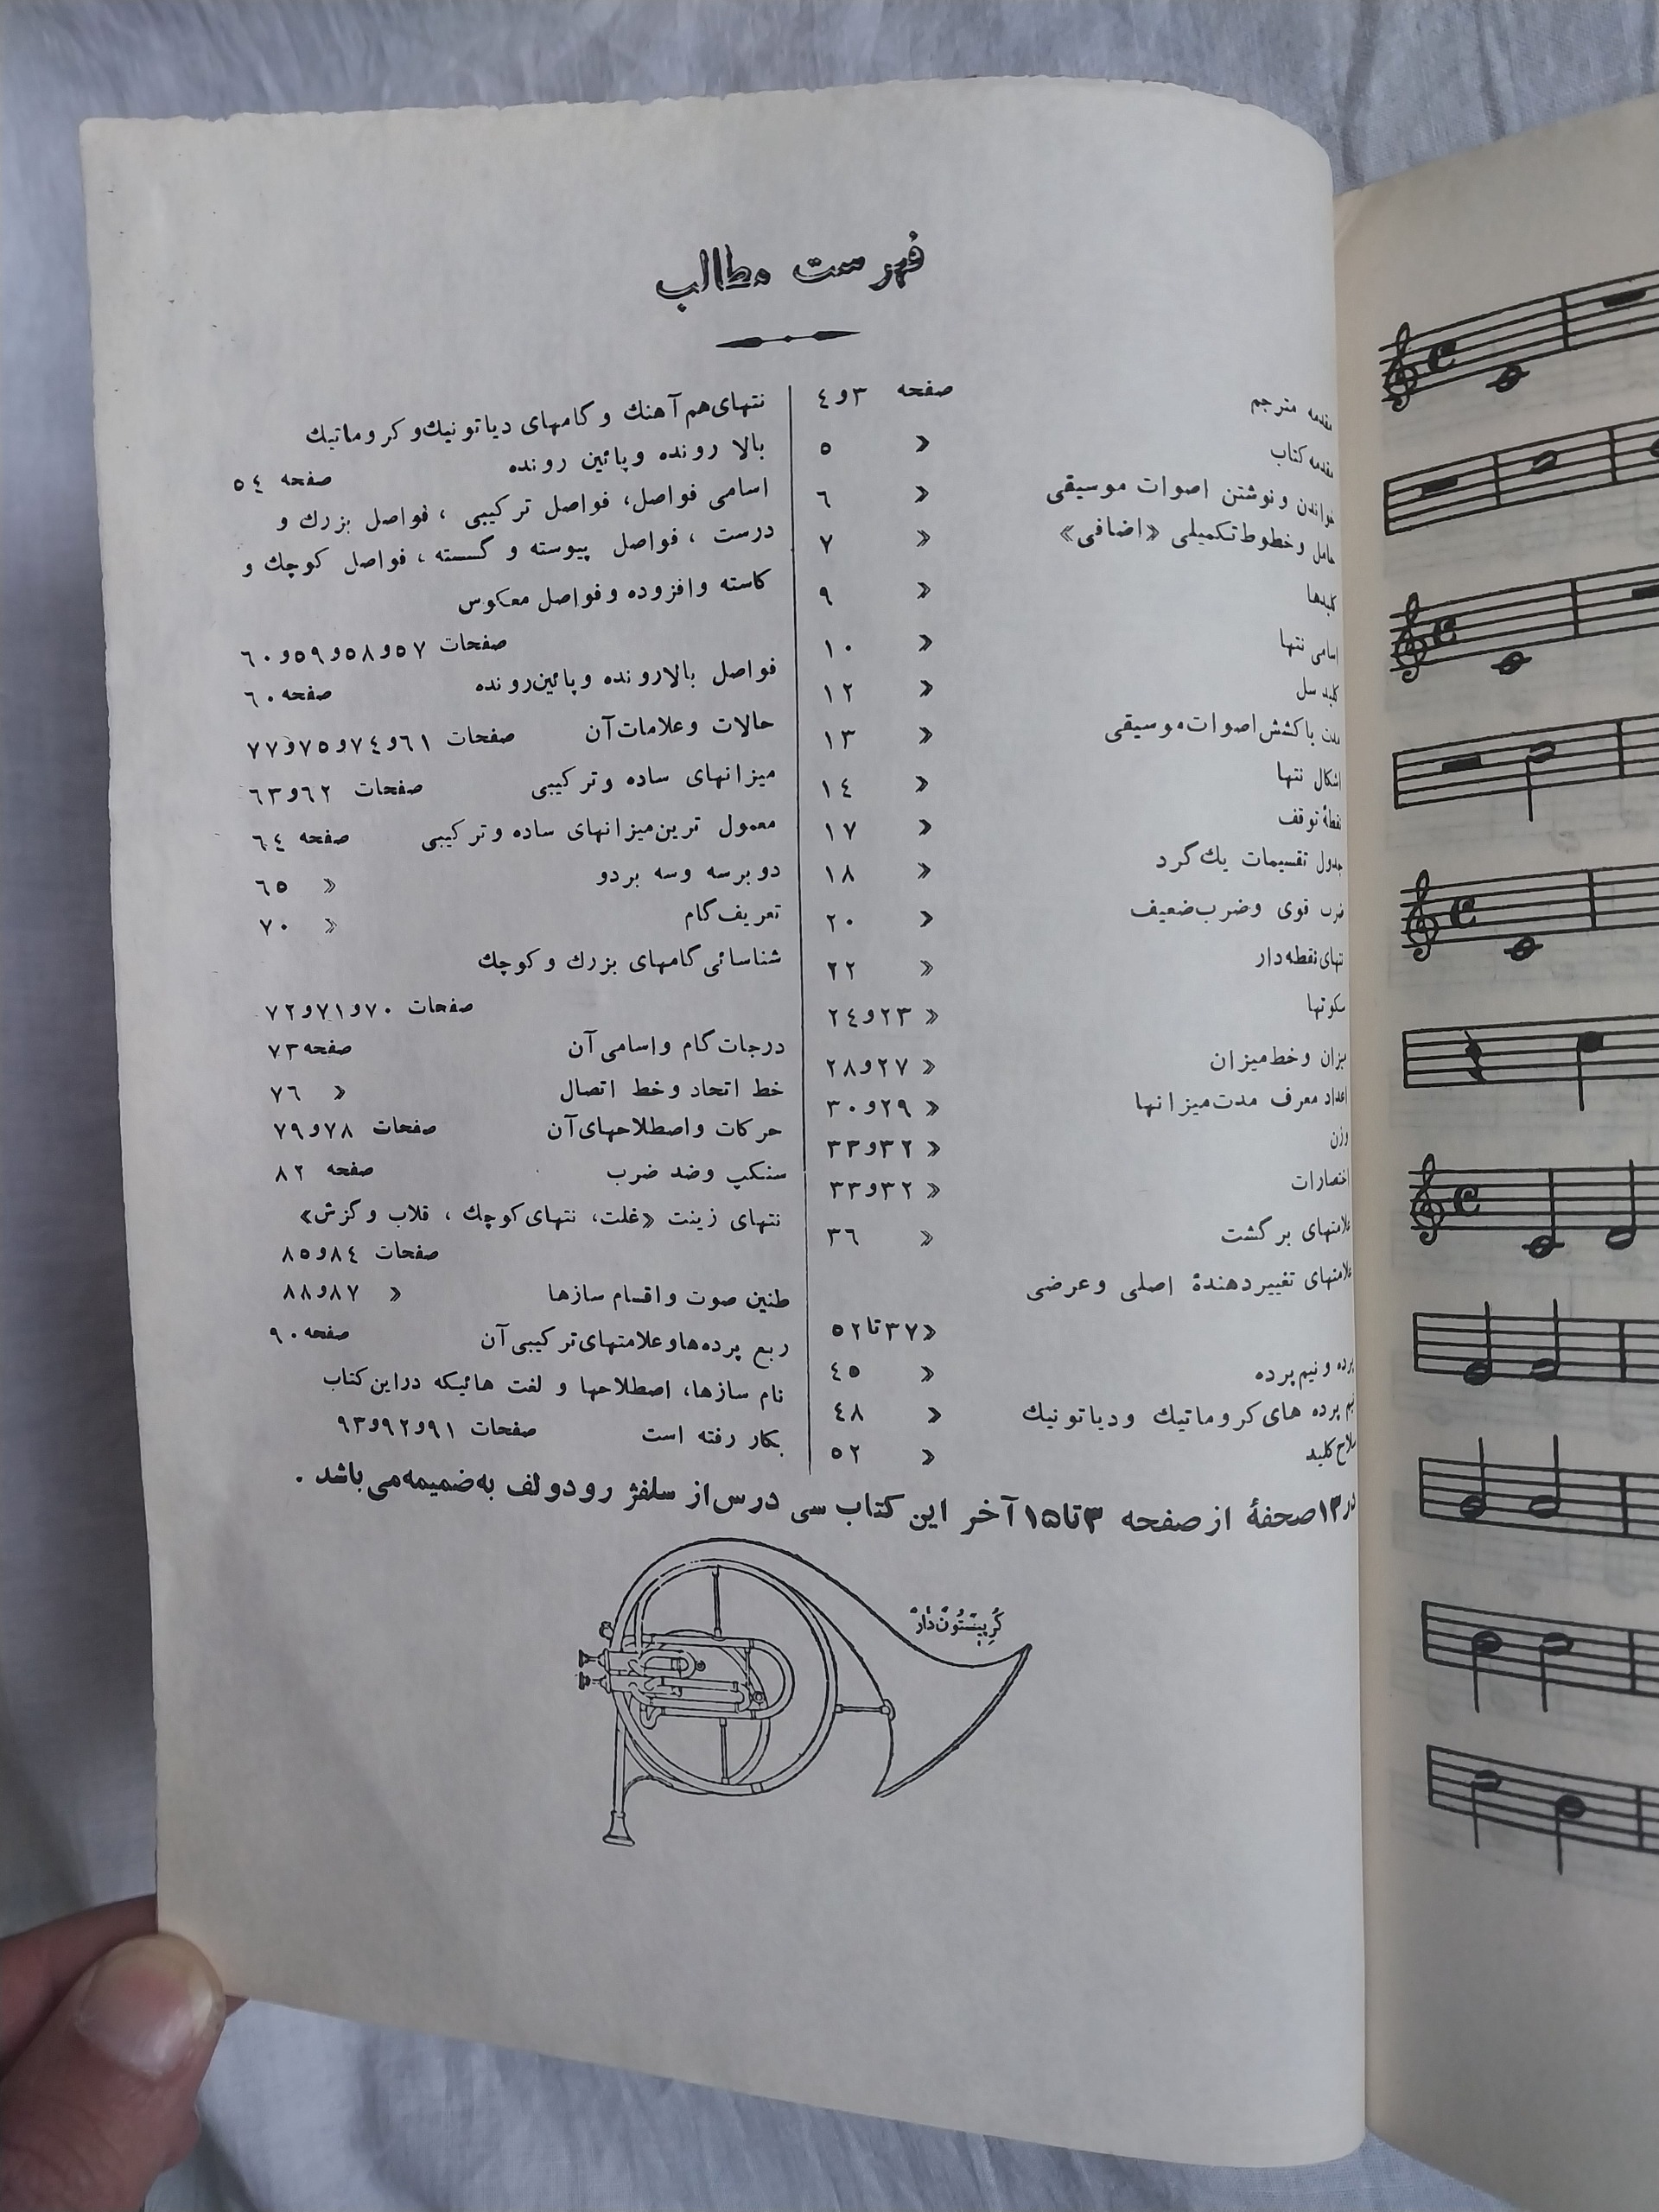 فهرست مطالب
مقدمه مترجم صفحه ٣و٤
مقدمه کتاب » ٥
خواندن و نوشتن اصوات موسیقی » ٦
حامل و خطوط تکمیلی «اضافی» » ٧
کلیدها » ٩
اسامی نتها » ١٠
کلید سل » ١٢
مدت یا کشش اصوات موسیقی » ١٣
اشکال نتها » ١٤
نقطهٔ توقف » ١٧
جدول تقسیمات یك گرد » ١٨
ضرب قوی و ضرب ضعیف » ٢٠
نتهای نقطه دار » ٢٢
سکوتها » ٢٣و٢٤
میزان و خط میزان » ٢٧و٢٨
اعداد معرف مدت میزانها » ٢٩و٣٠
وزن » ٣٢و٣٣
اختصارات » ٣٢و٣٣
علامتهای برگشت » ٣٦
علامتهای تغییردهندهٔ اصلی و عرضی
» ٣٧تا٥٢
پرده و نیم پرده » ٤٥
نیم پرده های کروماتیك و دیاتونیك » ٤٨
سلاح کلید » ٥٢
نتهای هم آهنك و گامهای دیاتونیك و کروماتیك
بالا رونده و پائین رونده صفحه ٥٤
اسامی فواصل، فواصل ترکیبی ، فواصل بزرك و
درست ، فواصل پیوسته و گسسته ، فواصل کوچك و
کاسته و افزوده و فواصل معکوس
صفحات ٥٧و٥٨و٥٩و٦٠
فواصل بالارونده و پائین رونده صفحه ٦٠
حالات و علامات آن صفحات ٦١و٧٤و٧٥و٧٧
میزانهای ساده و ترکیبی صفحات ٦٢و٦٣
معمول ترین میزانهای ساده و ترکیبی صفحه ٦٤
دو برسه و سه بردو » ٦٥
تعریف گام » ٧٠
شناسائی گامهای بزرك و کوچك
صفحات ٧٠و٧١و٧٢
درجات گام و اسامی آن صفحه ٧٣
خط اتحاد و خط اتصال » ٧٦
حرکات و اصطلاحهای آن صفحات ٧٨و٧٩
سنکپ و ضد ضرب صفحه ٨٢
نتهای زینت «غلت، نتهای کوچك ، قلاب و گزش»
صفحات ٨٤و٨٥
طنین صوت و اقسام سازها » ٨٧و٨٨
ربع پرده ها و علامتهای ترکیبی آن صفحه ٩٠
نام سازها، اصطلاحها و لغت هائیکه دراین کتاب
بکار رفته است صفحات ٩١و٩٢و٩٣
در١٣صحفهٔ از صفحه ٣تا١٥ آخر این کتاب سی درس از سلفژ رودولف به ضمیمه می باشد .
کُرِ پیستُون دار